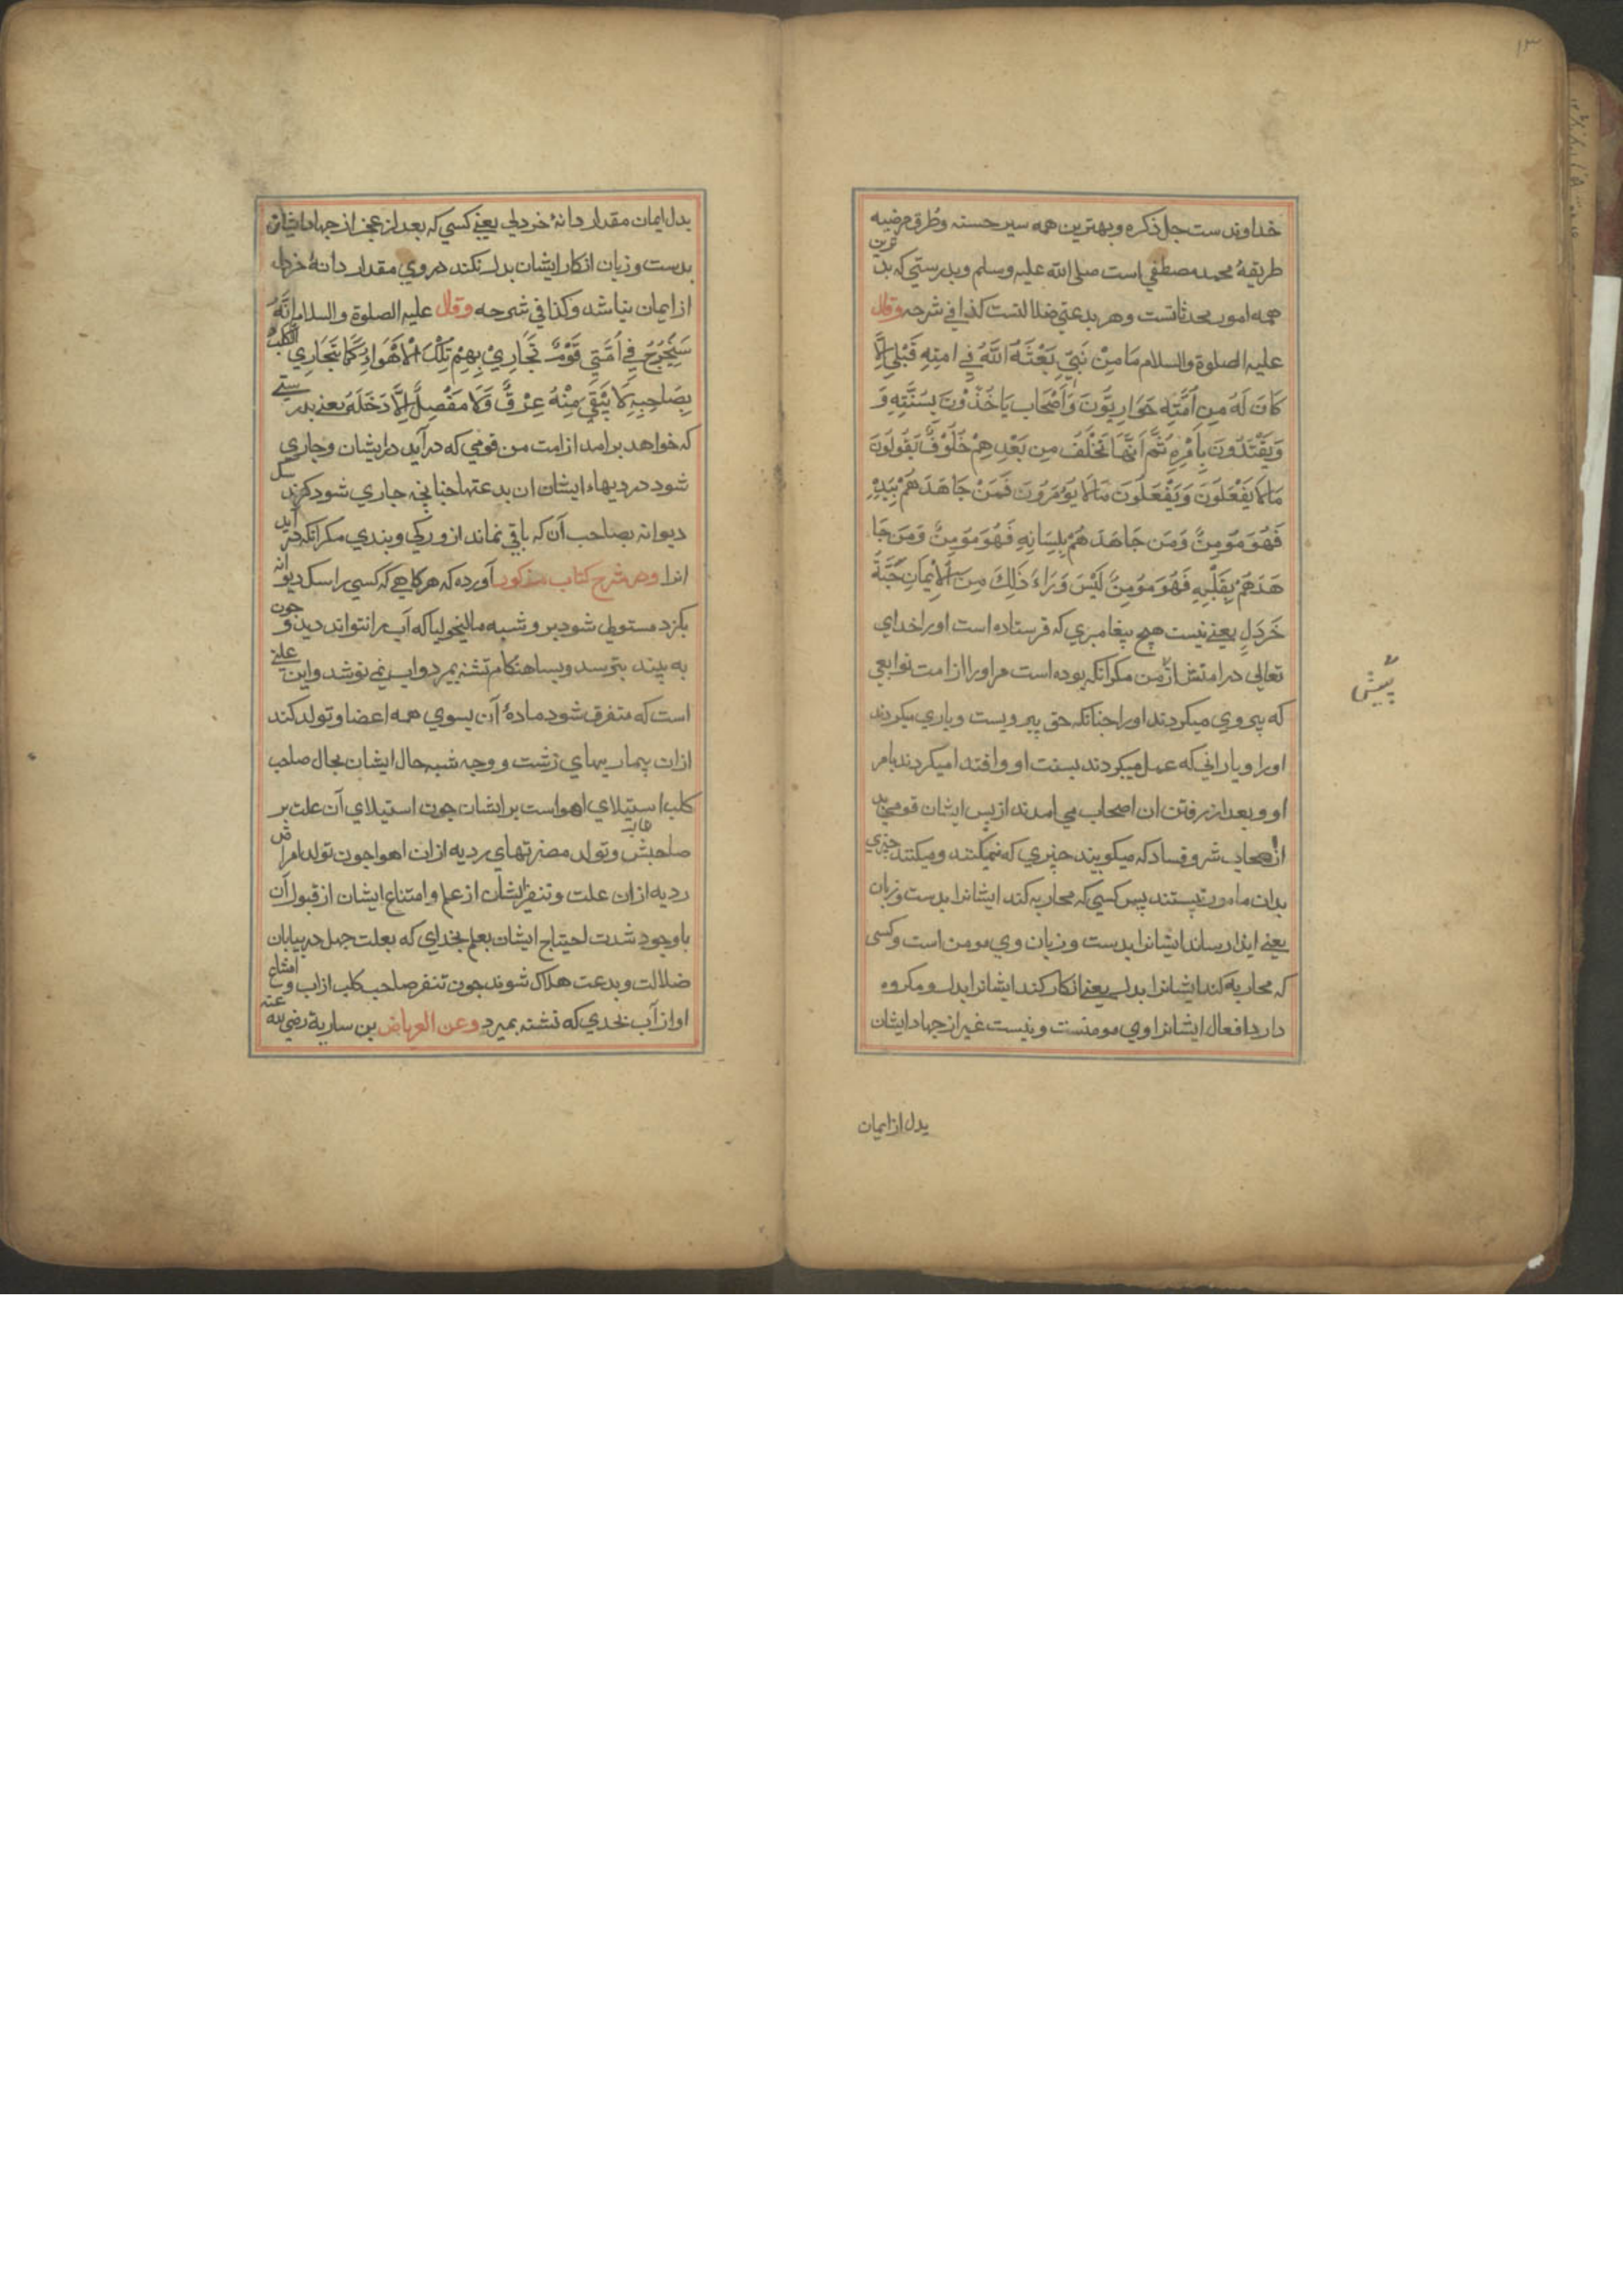 ۱۳
خداوندست جل ذکره و بهترین همه سیر حسنه وطرق مرضیه
طریقهٔ محمد مصطفی است صلی الله علیه وسلم وبدرستی که بدترین
همه امور محدثاتست وهر بدعتی ضلالتست کذا فی شرحه وقال
علیه الصلوة والسلام مَا مِنْ نَبِيٍّ بَعَثَهُ اللَّهُ فِي امتِهِ قَبْلِي إِلَّا
كَانَ لَهُ مِن اُمَّتِهِ حَوَارِيُّونَ وَأَصْحَاب يَاخُذُونَ بِسُنَّتِهِ وَ
وَيَقْتَدُونَ بِأَمْرِهِ ثُمَّ اَنَّهَا تَخْلَفُ مِن بَعْدِهِمْ خُلُوْفٌ يَقُولُونَ
مَا لَا يَفْعَلُونَ وَيَفْعَلُونَ مَا لَا يُؤمَرُونَ فَمَنْ جَاهَدَهُمْ بِيَدِهِ
فَهُوَ مُؤمِنٌ وَمَن جَاهَدَهُمْ بِلِسَانِهِ فَهُوَ مُؤمِنٌ وَمَن جَا
هَدَهُمْ بِقَلْبِهِ فَهُوَ مُؤمِنٌ لَيْسَ وَرَاءَ ذَلِكَ مِنَ الْاِيمَانِ حَبَّةُ
خَرْدَلٍ یعنی نیست هیچ پیغامبری که فرستاده است اورا خدای
تعالی در امتش از من مکر آنکه بوده است مر اورا از امت توابعی
پیش
که پیروی میکردند اورا جنانکه حق پیرویست ویاری میکردند
اورا ویارانی که عمل میکردند بسنت او واقتدا میکردند بامر
او و بعد از رفتن ان اصحاب می امدند از پس ایشان قومی بد
از اصحاب شر وفساد که میکویند جیزی که نمیکنند ومیکنند جیزی
بدان مامور نیستند پس کسی که محاربه کند ایشانرا بدست وزبان
یعنی ایذا رساند ایشانرا بدست وزبان وی مومن است وکسی
که محاربه کند ایشانرا بدل یعنی انکار کند ایشانرا بدل ومکروه
دارد افعال ایشانرا وی مومنست ونیست غیر از جهاد ایشان
بدل از ایمان
بدل ایمان مقدار دانهٔ خردلی یعنی کسی که بعد از عجز از جهاد ایشان
بدست وزبان انکار ایشان بدل نکند در وی مقدار دانهٔ خردل
از ایمان نباشد وکذا فی شرحه وقال علیه الصلوة والسلام اِنَّهُ
سَيَخْرُجُ فِي اُمَّتِي قَوْمٌ تَجَارِيْ بِهِمْ تِلْكَ الْاَهْوَاءُ كَمَا يَتَجَارِي الْكَلْبُ
بِصَاحِبِهِ لَا يَبْقَي مِنْهُ عِرْقٌ وَلَا مَفْصِلٌ إِلَّا دَخَلَهُ یعنی بدرستی
که خواهد برامد از امت من قومی که در آید در ایشان وجاری
شود در دیهاء ایشان ان بدعتها جنانچه جاری شود کزند سک
دیوانه بصاحب آن که باقی نماند از و رکی وبندی مکر آنکه در آید
انرا ودر شرح کتاب مذکور آورده که هرکاهی که کسی را سک دیوانه
بکزد مستولی شود برو شبه مالیخولیا که آب را نتواند دید و جون
به بیند بترسد وبسا هنکام تشنه بمیرد واب نمی نوشد واین علتی
است که متفرق شود مادهٔ آن بسوی همه اعضا وتولد کند
ازان بیماریهای زشت و وجه شبه حال ایشان بحال صاحب
کلب استیلای اهواست بر ایشان جون استیلای آن علت بر
صاحبش وتولد مضرتهای ردیه ازان اهوا جون تولد امراض
ردیه ازان علت وتنفر ایشان از علم وامتناع ایشان از قبول آن
باوجود شدت احتیاج ایشان بعلم بخدای که بعلت جهل در بیابان
ضلالت وبدعت هلاک شوند جون تنفر صاحب کلب از اب وامتناع
او از آب بحدی که تشنه بمیرد وعن العرباض بن ساریة رضی الله عنه